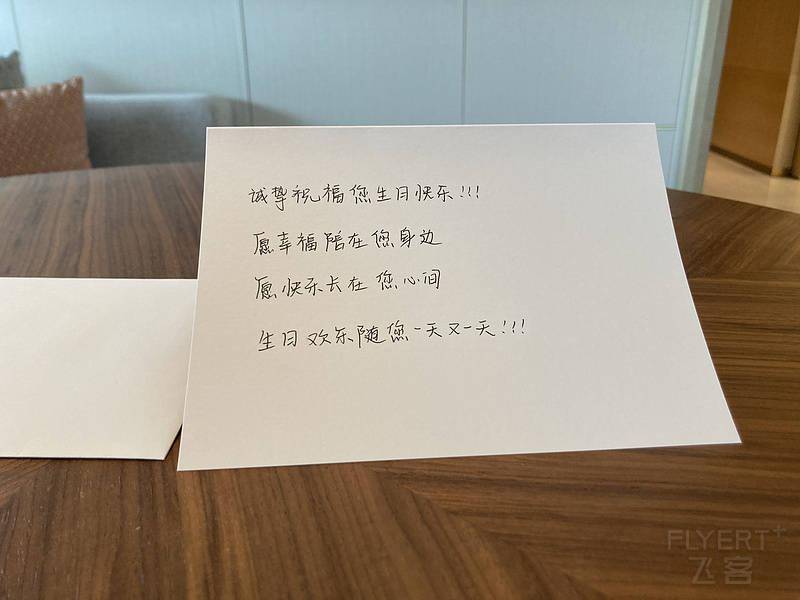 诚挚祝福您生日快乐!!!
愿幸福陪在您身边
愿快乐长在您心间
生日欢乐随您一天又一天!!!
FLYERT+
飞客